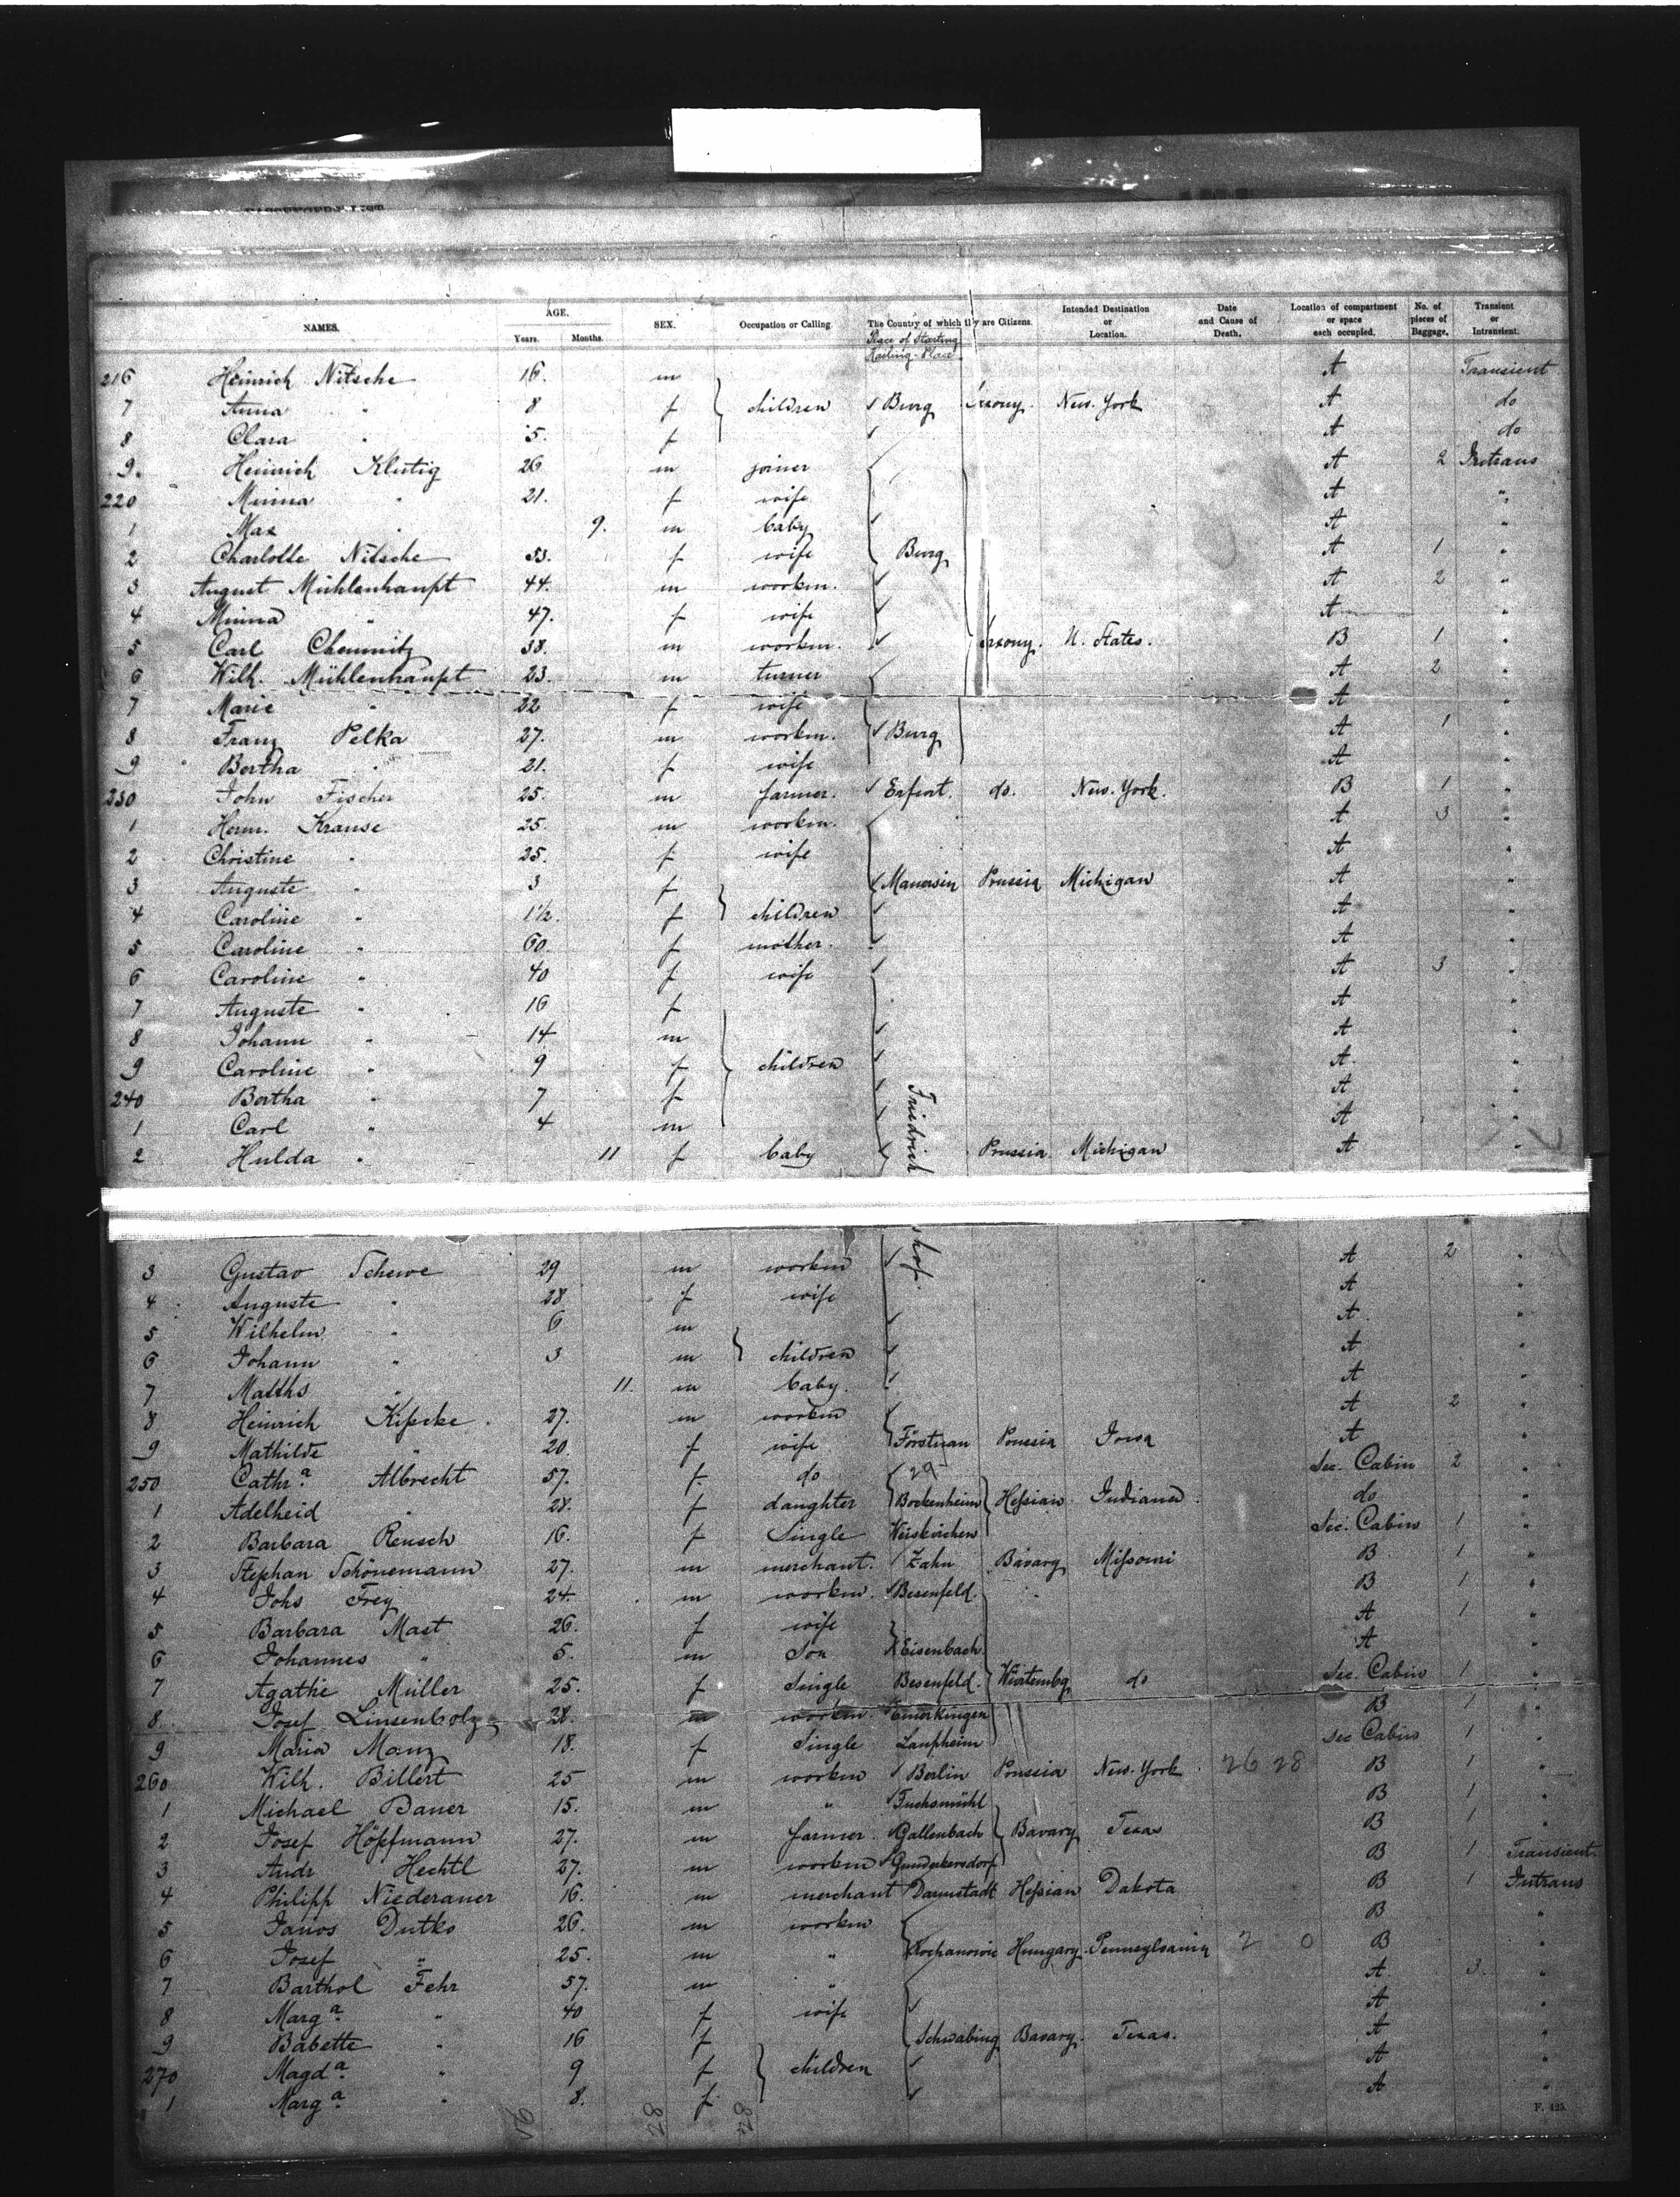 NAMES. AGE. Years. Months. SEX. Occupation or Calling The Country of which they are Citizens. Intended Destination or Location. Date and Cause of Death. Location of compartment or space each occupied. No. of pieces of Baggage. Transient or Intransient.
Place of Starting
216 Heinrich Nitsche 16. m A Transient
7 Anna " 8 f children Burg Saxony. New. York A do
8 Clara " 5. f A do
9. Heinrich Klutig 26 m joiner A 2 Intrans
220 Minna " 21. f wife A "
1 Max " 9. m baby A "
2 Charlotte Nitsche 53. f wife Burg A 1 "
3 August Mühlenhaupt 44. m workm. A 2 "
4 Minna " 47. f wife A "
5 Carl Chemnitz 38. m workm. Saxony. U. States. B 1 "
6 Wilh. Mühlenhaupt 23. m turner A 2 "
7 Marie " 22 f wife A "
8 Franz Pelka 27. m workm. Burg A 1 "
9 Bertha " 21. f wife A "
230 John Fischer 25. m farmer. Erfurt. do. New. York. B 1 "
1 Herm. Krause 25. m workm. A 3 "
2 Christine " 25. f wife A "
3 Auguste " 3 f Manersin Prussia Michigan A "
4 Caroline " 1½. f children A "
5 Caroline " 60. f mother. A "
6 Caroline " 40 f wife A 3 "
7 Auguste " 16 f A "
8 Johann " 14 m A "
9 Caroline " 9 f children A "
240 Bertha " 7 f A "
1 Carl " 4 m A "
2 Hulda " 11 f baby Friedrich Prussia Michigan A "
3 Gustav Schewe 29 m workm hof. A 2 "
4 Auguste " 28 f wife A
5 Wilhelm " 6 m A "
6 Johann " 3 m children A
7 Matths " 11. m baby. A "
8 Heinrich 27. m workm A 2 "
9 Mathilde " 20. f wife Prussia Iowa A "
250 Cathr.a Albrecht 57. f do 29 Sec. Cabin 2 "
1 Adelheid " 28. f daughter Bockenheim Hessian Indiana. do "
2 Barbara Reusch 16. f Single Weiskirchen Sec. Cabin 1 "
3 Stephan Schönemann 27. m merchant. Zahn Bavary Missouri B 1 "
4 Johs Frey 24. m workm. Besenfeld. B 1 "
5 Barbara Mast 26. f wife A 1 "
6 Johannes " 5. m Son Eisenbach A
7 Agathe Müller 25. f Single Besenfeld. Würtembg do Sec. Cabin 1 "
8 Josef Linsenbolz 28. m workm. Emerkingen B 1 "
9 Maria Manz 18. f Single Laupheim Sec Cabin 1 "
260 Wilh. Billert 25 m workm Berlin Prussia New. York. 26 28 B 1 "
1 Michael Bauer 15. m " Fuchsmühl B 1 "
2 Josef Höpfmann 27. m farmer. Gallenbach Bavary Texas B 1 "
3 Andr Hechtl 27. m workm B 1 Transient.
4 Philipp Niederauer 16. m merchant Darmstadt Hessian Dakota B 1 Intrans
5 Janos Dutko 26. m workm B "
6 Josef " 25. m " Hungary Pennsylvania 2 0 B "
7 Barthol Fehr 57. m " A 3. "
8 Marg.a " 40 f wife A "
9 Babette " 16 f Schwabing Bavary. Texas. A "
270 Magd.a " 9 f children A "
1 Marg.a " 8. f A "
28 28
F. 425.